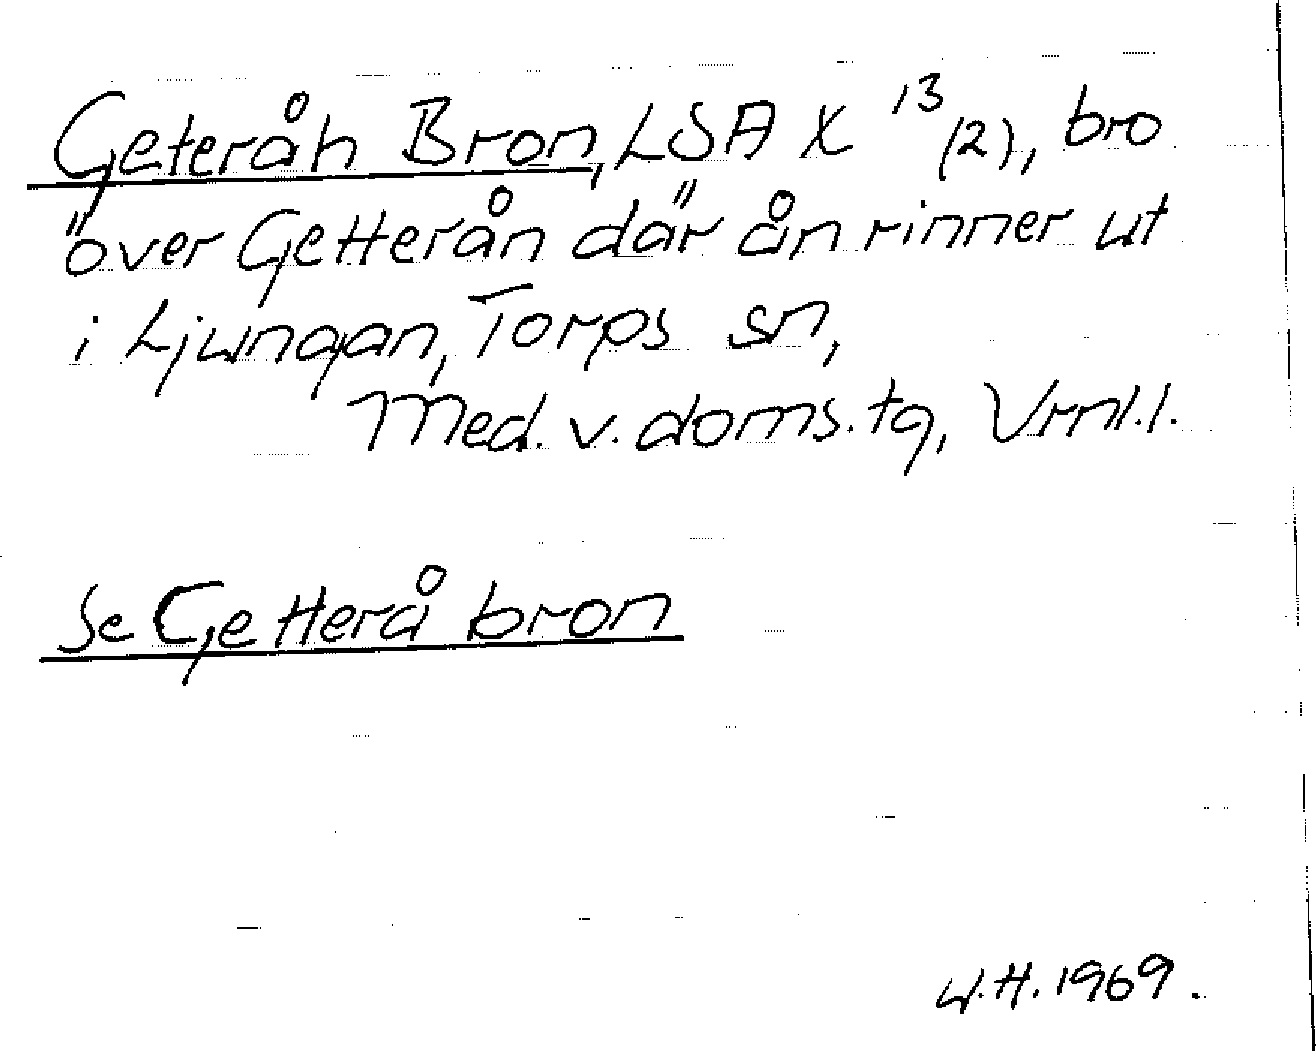 Geteråh Bron, LSA X 13 (2), bro
över Getterån där ån rinner ut
i Ljungan, Torps sn,
Med. v. doms. tg, Vrnl.l.
Se Getterå bron
W.H. 1969.